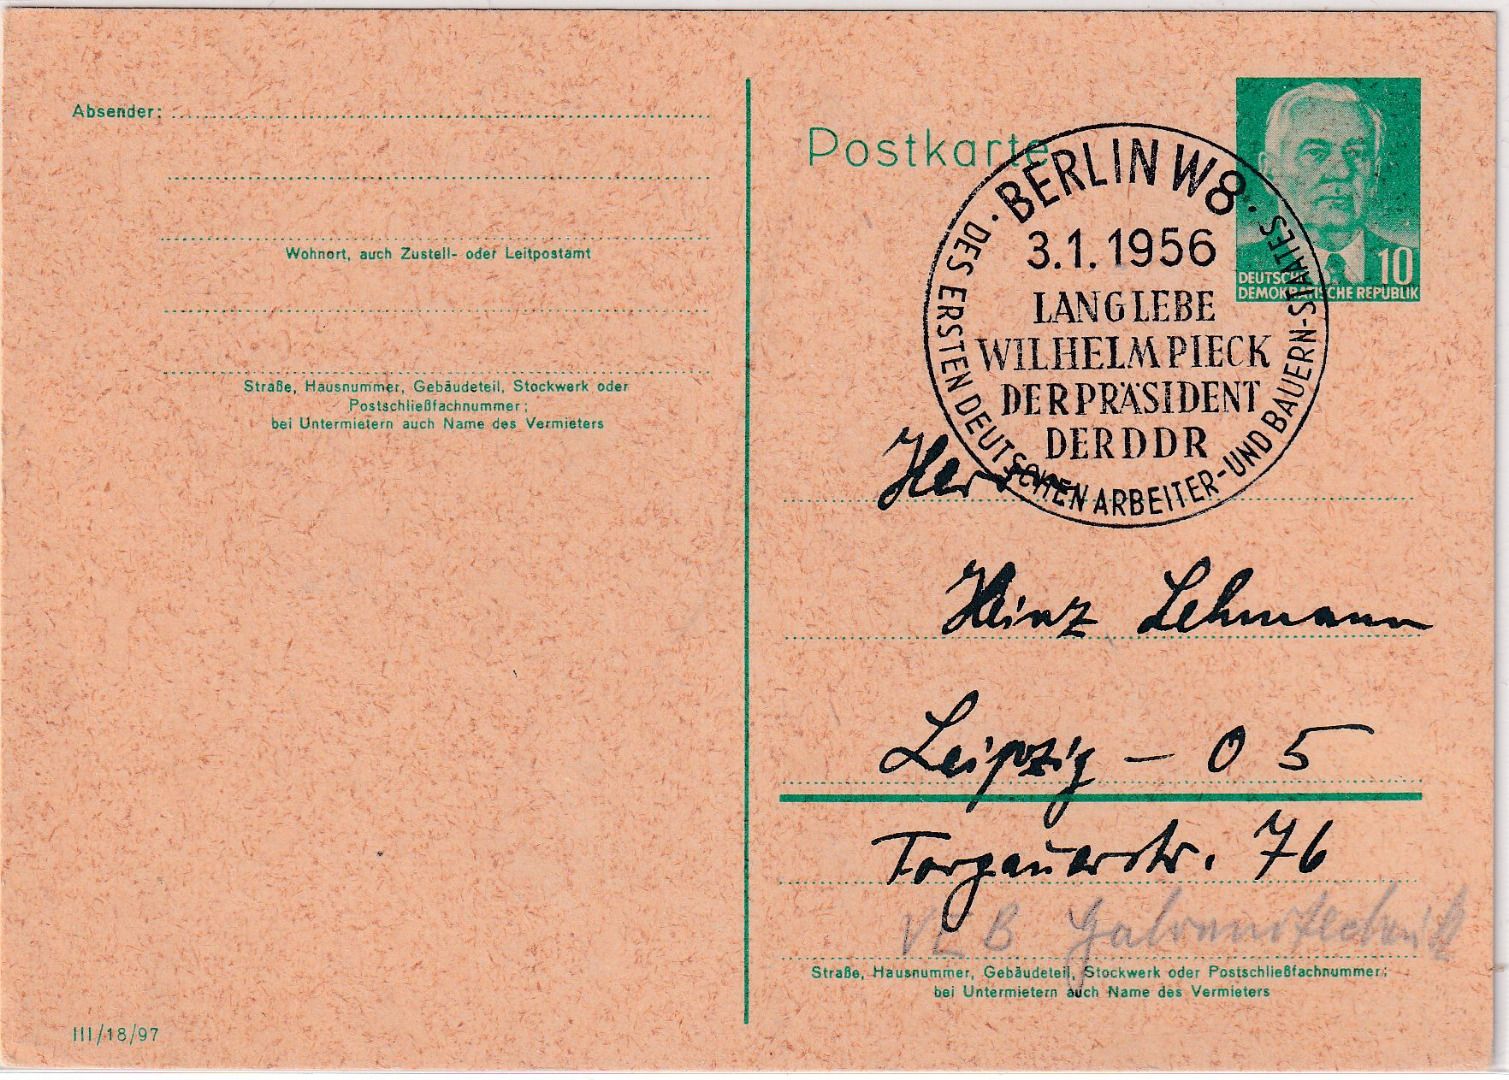 Absender:
Wohnort, auch Zustell- oder Leitpostamt
Straße, Hausnummer, Gebäudeteil, Stockwerk oder
Postschließfachnummer;
bei Untermietern auch Name des Vermieters
III/18/97
Postkarte
10
DEUTSCHE
DEMOKRATISCHE REPUBLIK
· BERLIN W8 ·
3.1.1956
LANG LEBE
WILHELM PIECK
DER PRÄSIDENT
DER DDR
DES ERSTEN DEUTSCHEN ARBEITER-UND BAUERN-STAATES
Herrn
Heinz Lehmann
Leipzig – O 5
Torgauerstr. 76
VEB Galvanotechnik
Straße, Hausnummer, Gebäudeteil, Stockwerk oder Postschließfachnummer;
bei Untermietern auch Name des Vermieters